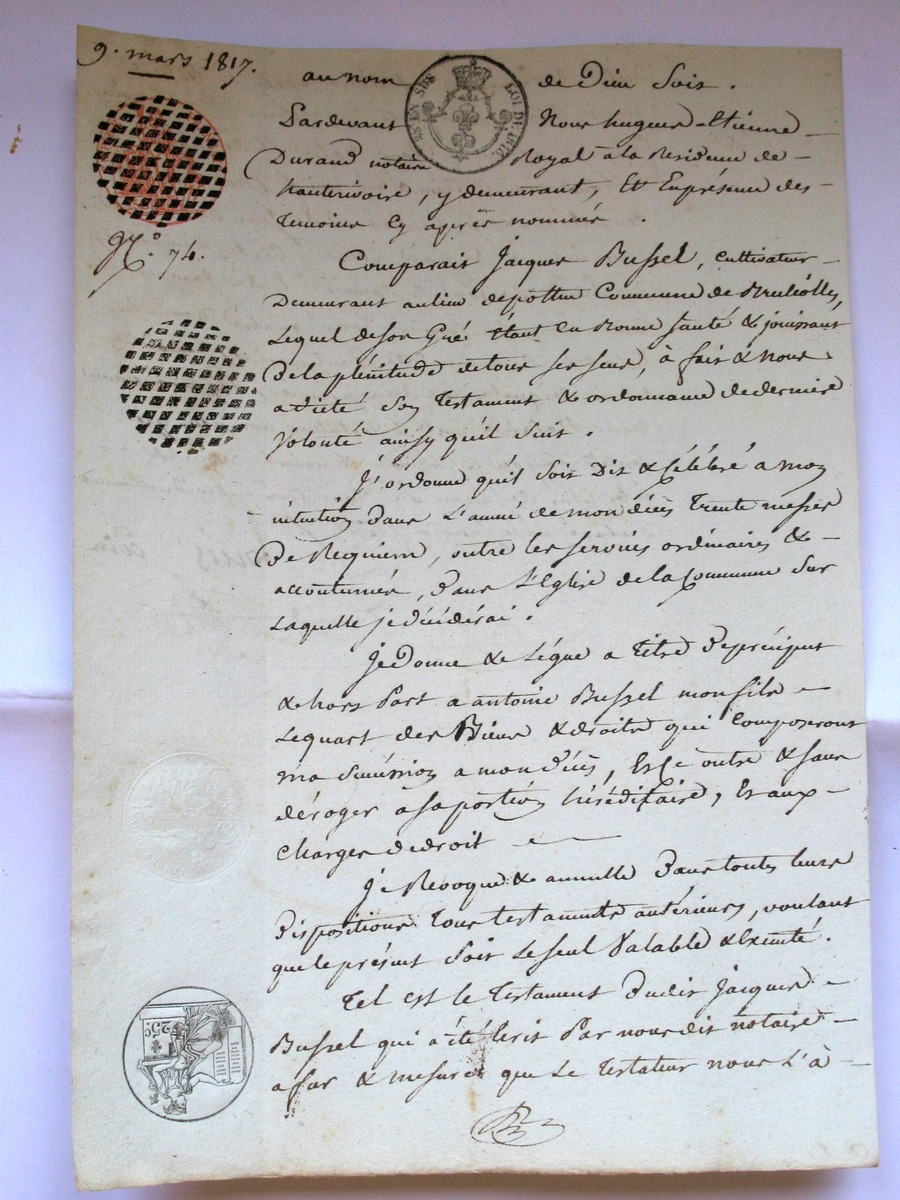 9. mars 1817.
au nom de Dieu Soit.
Pardevant Nous hugues-Etienne
Durand notaire Royal à la Residence de
hauterivoire, y demeurant, Et En présence des
temoins Cy après nommés.
N.° 74.
Comparait Jacques Bussel, cultivateur
Demeurant au lieu de pottu Commune de Brulliolles,
Lequel de Son Gré Etant En Bonne santé & jouissant
De la plénitude de tous ses sens, à fait & Nous
a dicté Son Testament & ordonnance de derniere
Volonté ainsy qu'il Suit.
J'ordonne qu'il Soit Dit & Célébré a mon
intention Dans L'année de mon décès Trente messes
De Requiem, outre les services ordinaires &
accoutumés, Dans L'Eglise de la Commune Sur
Laquelle je décéderai.
Je Donne & Légue a titre De préciput
& hors Part a antoine Bussel mon fils
Le quart des Biens & droits qui Composeront
ma Succession a mon décès, Et Ce outre & sans
déroger à sa portion héréditaire, Et aux
Charges de droit
Je Revoque & annulle Dans toutes leurs
Dispositions Tous testaments antérieurs, voulant
que le présent Soit Le seul Valable & Exécuté.
Tel est le Testament Dudit Jacques
Bussel qui à été Ecrit Par nous dit notaire
a fur & mesure que Le Testateur nous L'à
LOI DE 1816.
25c.